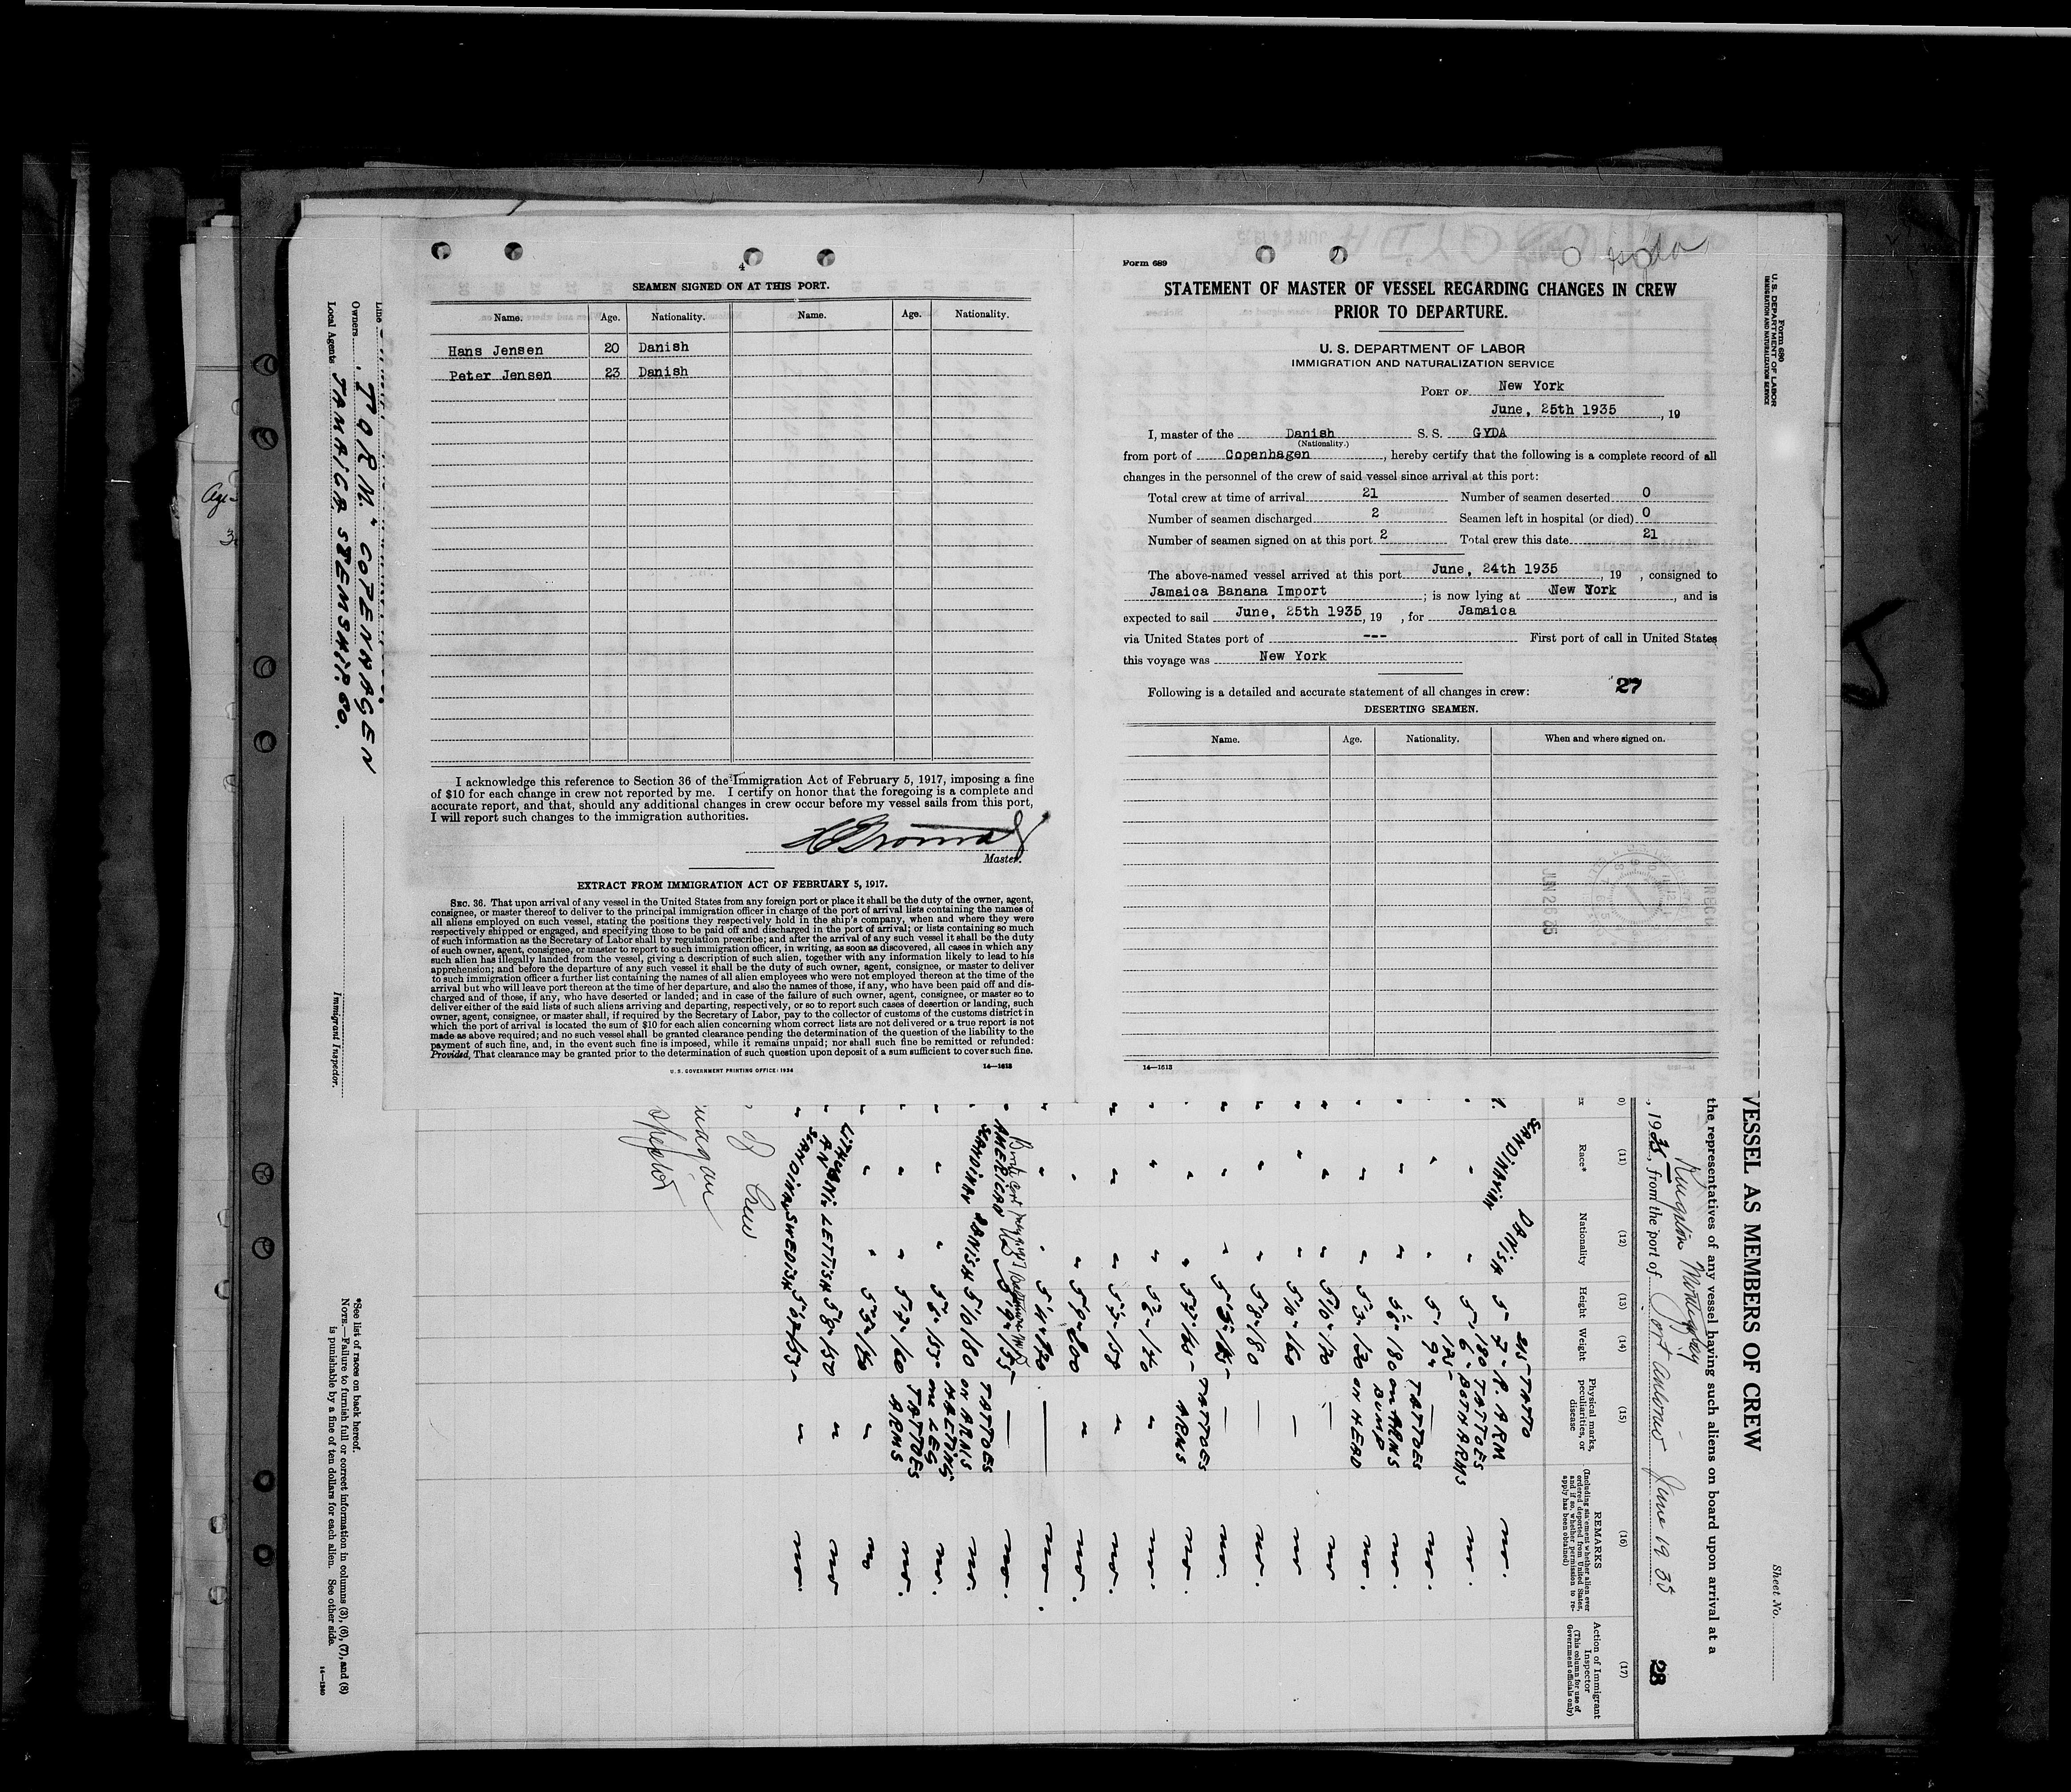 4
SEAMEN SIGNED ON AT THIS PORT.
Name. Age. Nationality. Name. Age. Nationality.
Hans Jensen 20 Danish
Peter Jensen 23 Danish
I acknowledge this reference to Section 36 of the Immigration Act of February 5, 1917, imposing a fine
of $10 for each change in crew not reported by me. I certify on honor that the foregoing is a complete and
accurate report, and that, should any additional changes in crew occur before my vessel sails from this port,
I will report such changes to the immigration authorities.
Master.
EXTRACT FROM IMMIGRATION ACT OF FEBRUARY 5, 1917.
SEC. 36. That upon arrival of any vessel in the United States from any foreign port or place it shall be the duty of the owner, agent,
consignee, or master thereof to deliver to the principal immigration officer in charge of the port of arrival lists containing the names of
all aliens employed on such vessel, stating the positions they respectively hold in the ship's company, when and where they were
respectively shipped or engaged, and specifying those to be paid off and discharged in the port of arrival; or lists containing so much
of such information as the Secretary of Labor shall by regulation prescribe; and after the arrival of any such vessel it shall be the duty
of such owner, agent, consignee, or master to report to such immigration officer, in writing, as soon as discovered, all cases in which any
such alien has illegally landed from the vessel, giving a description of such alien, together with any information likely to lead to his
apprehension; and before the departure of any such vessel it shall be the duty of such owner, agent, consignee, or master to deliver
to such immigration officer a further list containing the names of all alien employees who were not employed thereon at the time of the
arrival but who will leave port thereon at the time of her departure, and also the names of those, if any, who have been paid off and dis-
charged and of those, if any, who have deserted or landed; and in case of the failure of such owner, agent, consignee, or master so to
deliver either of the said lists of such aliens arriving and departing, respectively, or so to report such cases of desertion or landing, such
owner, agent, consignee, or master shall, if required by the Secretary of Labor, pay to the collector of customs of the customs district in
which the port of arrival is located the sum of $10 for each alien concerning whom correct lists are not delivered or a true report is not
made as above required; and no such vessel shall be granted clearance pending the determination of the question of the liability to the
payment of such fine, and, in the event such fine is imposed, while it remains unpaid; nor shall such fine be remitted or refunded:
Provided, That clearance may be granted prior to the determination of such question upon deposit of a sum sufficient to cover such fine.
U. S. GOVERNMENT PRINTING OFFICE: 1934 14—1613
Form 689
Gyda
STATEMENT OF MASTER OF VESSEL REGARDING CHANGES IN CREW
PRIOR TO DEPARTURE.
U. S. DEPARTMENT OF LABOR
IMMIGRATION AND NATURALIZATION SERVICE
PORT OF New York
June, 25th 1935, 19
I, master of the Danish S. S. GYDA
(Nationality.)
from port of Copenhagen, hereby certify that the following is a complete record of all
changes in the personnel of the crew of said vessel since arrival at this port:
Total crew at time of arrival 21 Number of seamen deserted 0
Number of seamen discharged 2 Seamen left in hospital (or died) 0
Number of seamen signed on at this port 2 Total crew this date 21
The above-named vessel arrived at this port June, 24th 1935, 19 , consigned to
Jamaica Banana Import; is now lying at New York, and is
expected to sail June, 25th 1935, 19 , for Jamaica
via United States port of --- First port of call in United States
this voyage was New York
Following is a detailed and accurate statement of all changes in crew: 27
DESERTING SEAMEN.
Name. Age. Nationality. When and where signed on.
JUN 26 35
14—1613
Form 680
U. S. DEPARTMENT OF LABOR
IMMIGRATION AND NATURALIZATION SERVICE
Sheet No.
VESSEL AS MEMBERS OF CREW
the representatives of any vessel having such aliens on board upon arrival at a
Kingston Montego Bay
, 1935, from the port of Port Antonio June 19 35
28
(11) (12) (13) (14) (15) (16) (17)
Race* Nationality Height Weight Physical marks, peculiarities, or disease
REMARKS
(Including statement whether alien ever ordered deported from United States, and if so, whether permission to reapply has been obtained)
Action of Immigrant Inspector
(This column for use of Government officials only)
SCANDINAVIAN DANISH 5-7- 215- TATTO R. ARM no.
" " 5' 6" 180 TATTOES BOTH ARMS no.
" " 5' 9" 175- — no.
" " 5'8" 180 TATTOES ON ARMS no.
" " 5'3" 130 BUMP ON HEAD no.
" " 5'10" 170 — no
" " 5'10" 160 — no
" " 5'8" 180 — no.
" " 165- — no.
" " 5'7" 165- TATTOES ARMS no.
" " 5'6" 140 " no.
" " 5'7" 154 " no.
" " 5'9" 200 " no.
" " 5'11" 170 — no.
AMERICAN US 5'9" 135- — no.
SCANDINAV DANISH 5'10 180 TATTOES ON ARMS no.
" " 5'6" 155- no.
" " 5'7" 160 TATTOES ARMS no.
" " 5'5" 160 " no
LITHUANIAN LETTISH 5'8" 150 " no
SCANDINAV SWEDISH " no.
Line
Owners "TORM." COPENHAGEN
Local Agents JAMAICA STEMSHIP. CO.
Immigrant Inspector.
*See list of races on back hereof.
NOTE.—Failure to furnish full or correct information in columns (3), (6), (7), and (8)
is punishable by a fine of ten dollars for each alien. See other side.
14—1240
Age